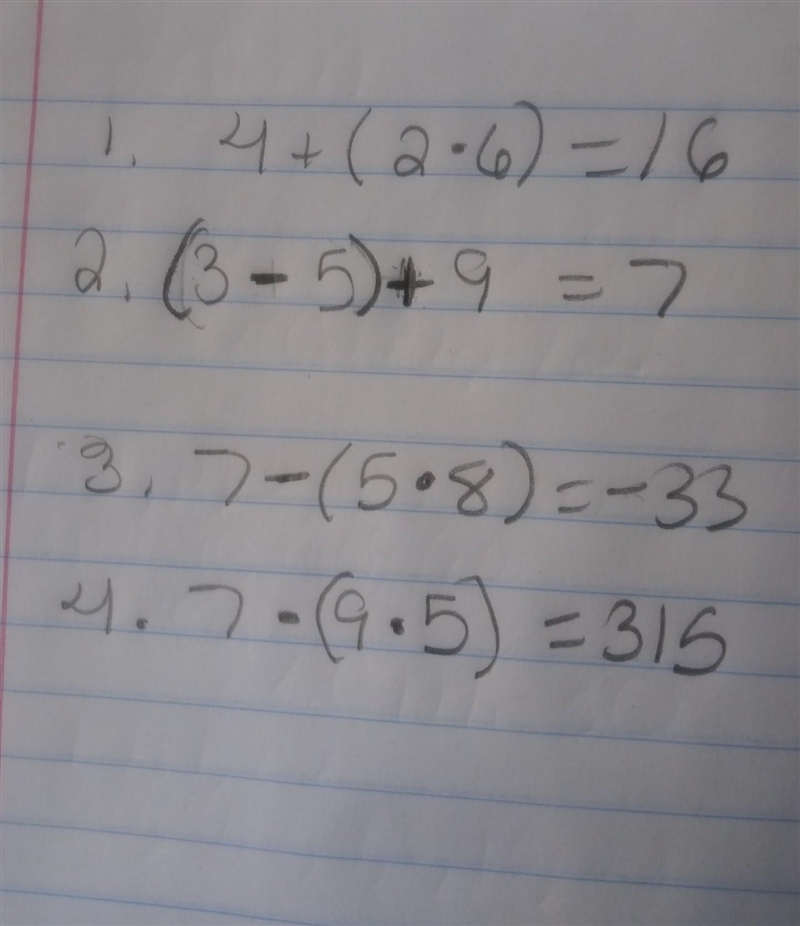 1. 4+(2·6)=16
2. (3-5)+9=7
3. 7-(5·8)=-33
4. 7·(9·5)=315